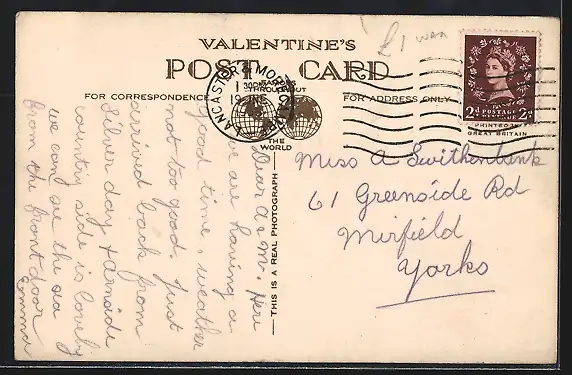 £1 WAR
VALENTINE'S
POST CARD
FOR CORRESPONDENCE
FOR ADDRESS ONLY
FAMOUS
THROUGHOUT
THE
WORLD
LANCASTER MORECAMBE
19
2D POSTAGE REVENUE 2D
PRINTED IN
GREAT BRITAIN
THIS IS A REAL PHOTOGRAPH
Dear A & M. Here
we are having a
good time, weather
not too good. Just
arrived back from
Silverday & Arnside
country side is lovely
we can see the sea
from the front door
Emma
Miss A Swithenbank
61 Greenside Rd
Mirfield
Yorks